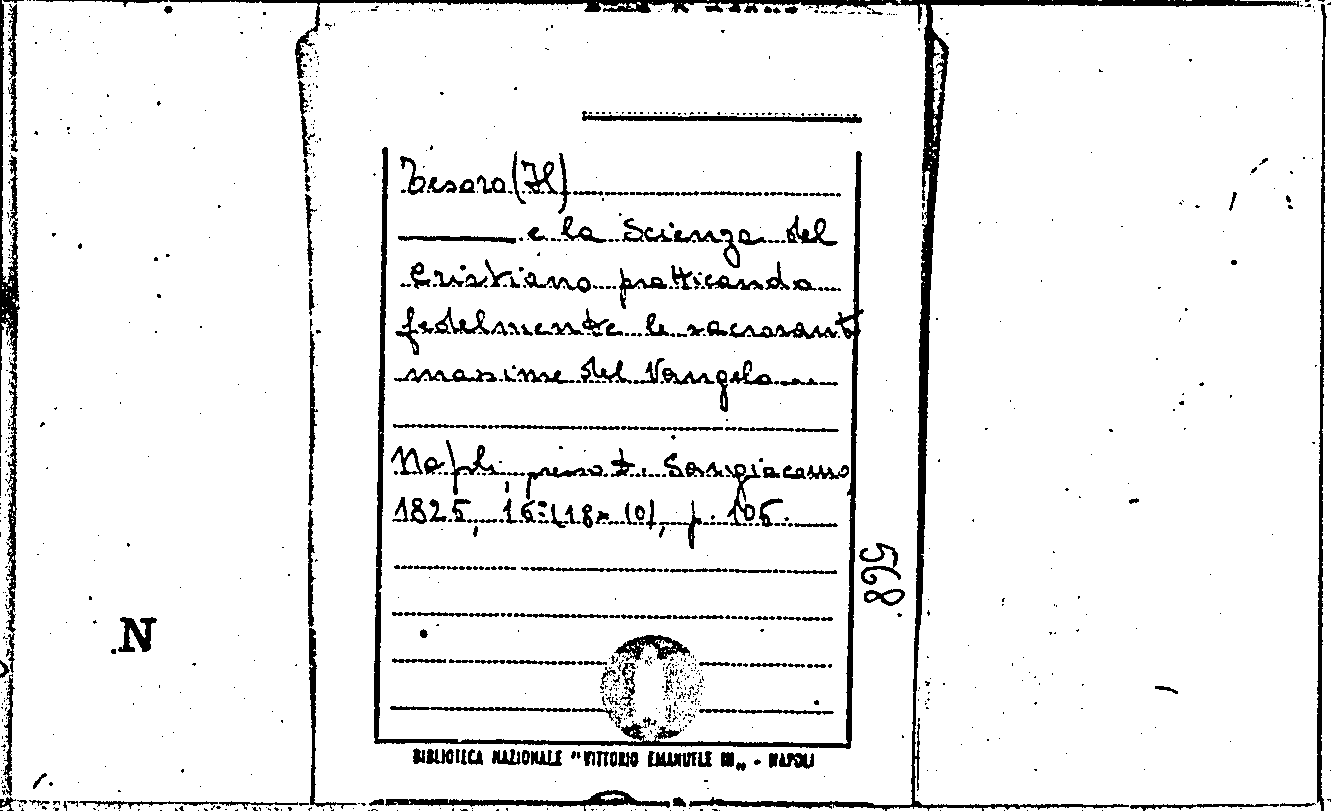 Tesoro (Il)
______ e la Scienza del
Cristiano pratticando
fedelmente le sacrosanti
massime del Vangelo...
Napoli, presso F. Sangiacomo
1825, 16º (18x10), p. 106.
568
N
BIBLIOTECA NAZIONALE "VITTORIO EMANUELE III" - NAPOLI